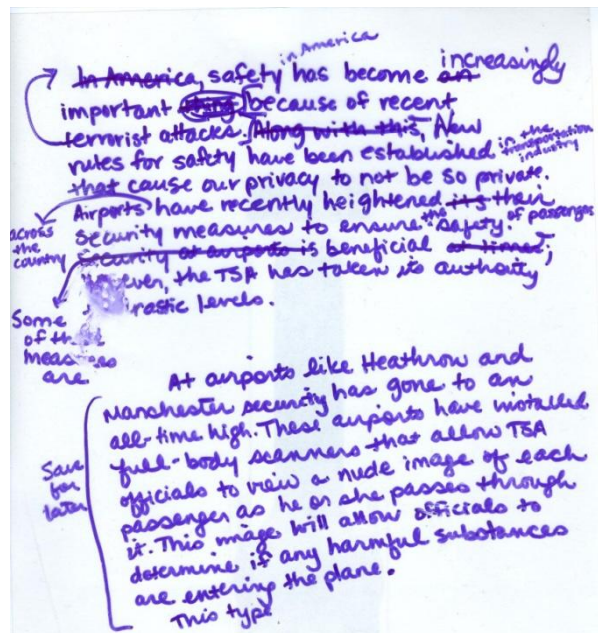 in America
In America, safety has become an increasingly
important thing because of recent
terrorist attacks. Along with this, New
rules for safety have been established in the transportation industry
that cause our privacy to not be so private.
Airports have recently heightened its their
across the country
security measures to ensure the safety. of passengers
security at airports is beneficial at times;
the TSA has taken its authority
levels.
Some
of
measures
are
At airports like Heathrow and
Manchester security has gone to an
all-time high. These airports have installed
full-body scanners that allow TSA
officials to view a nude image of each
passenger as he or she passes through
it. This image will allow officials to
determine if any harmful substances
are entering the plane.
This type
Save
for
later